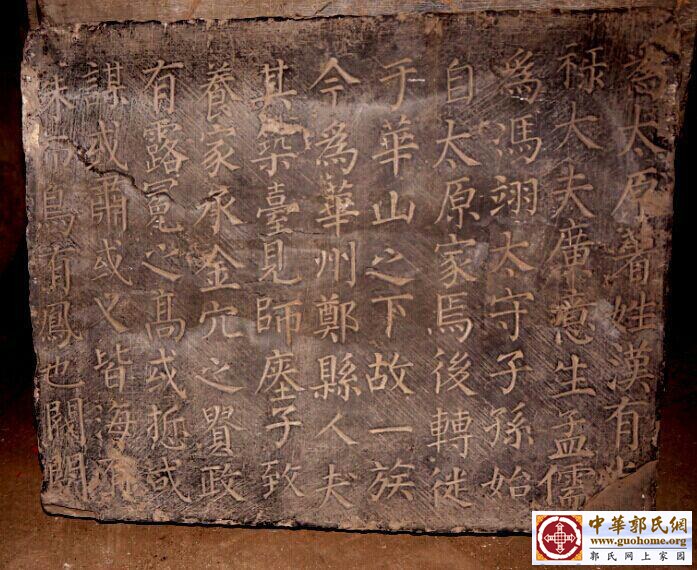 為太原著姓漢有
祿大夫廣意生孟儒
爲馮翊太守子孫始
自太原家焉後轉徙
于華山之下故一族
今爲華州鄭縣人夫
其築臺見師瘞子致
養家承金穴之貴政
有露冕之髙或悊或
謀或肅或乂皆海有
珠而鳥有鳳也閥閱
中華郭氏網
www.guohome.org
郭氏网上家园